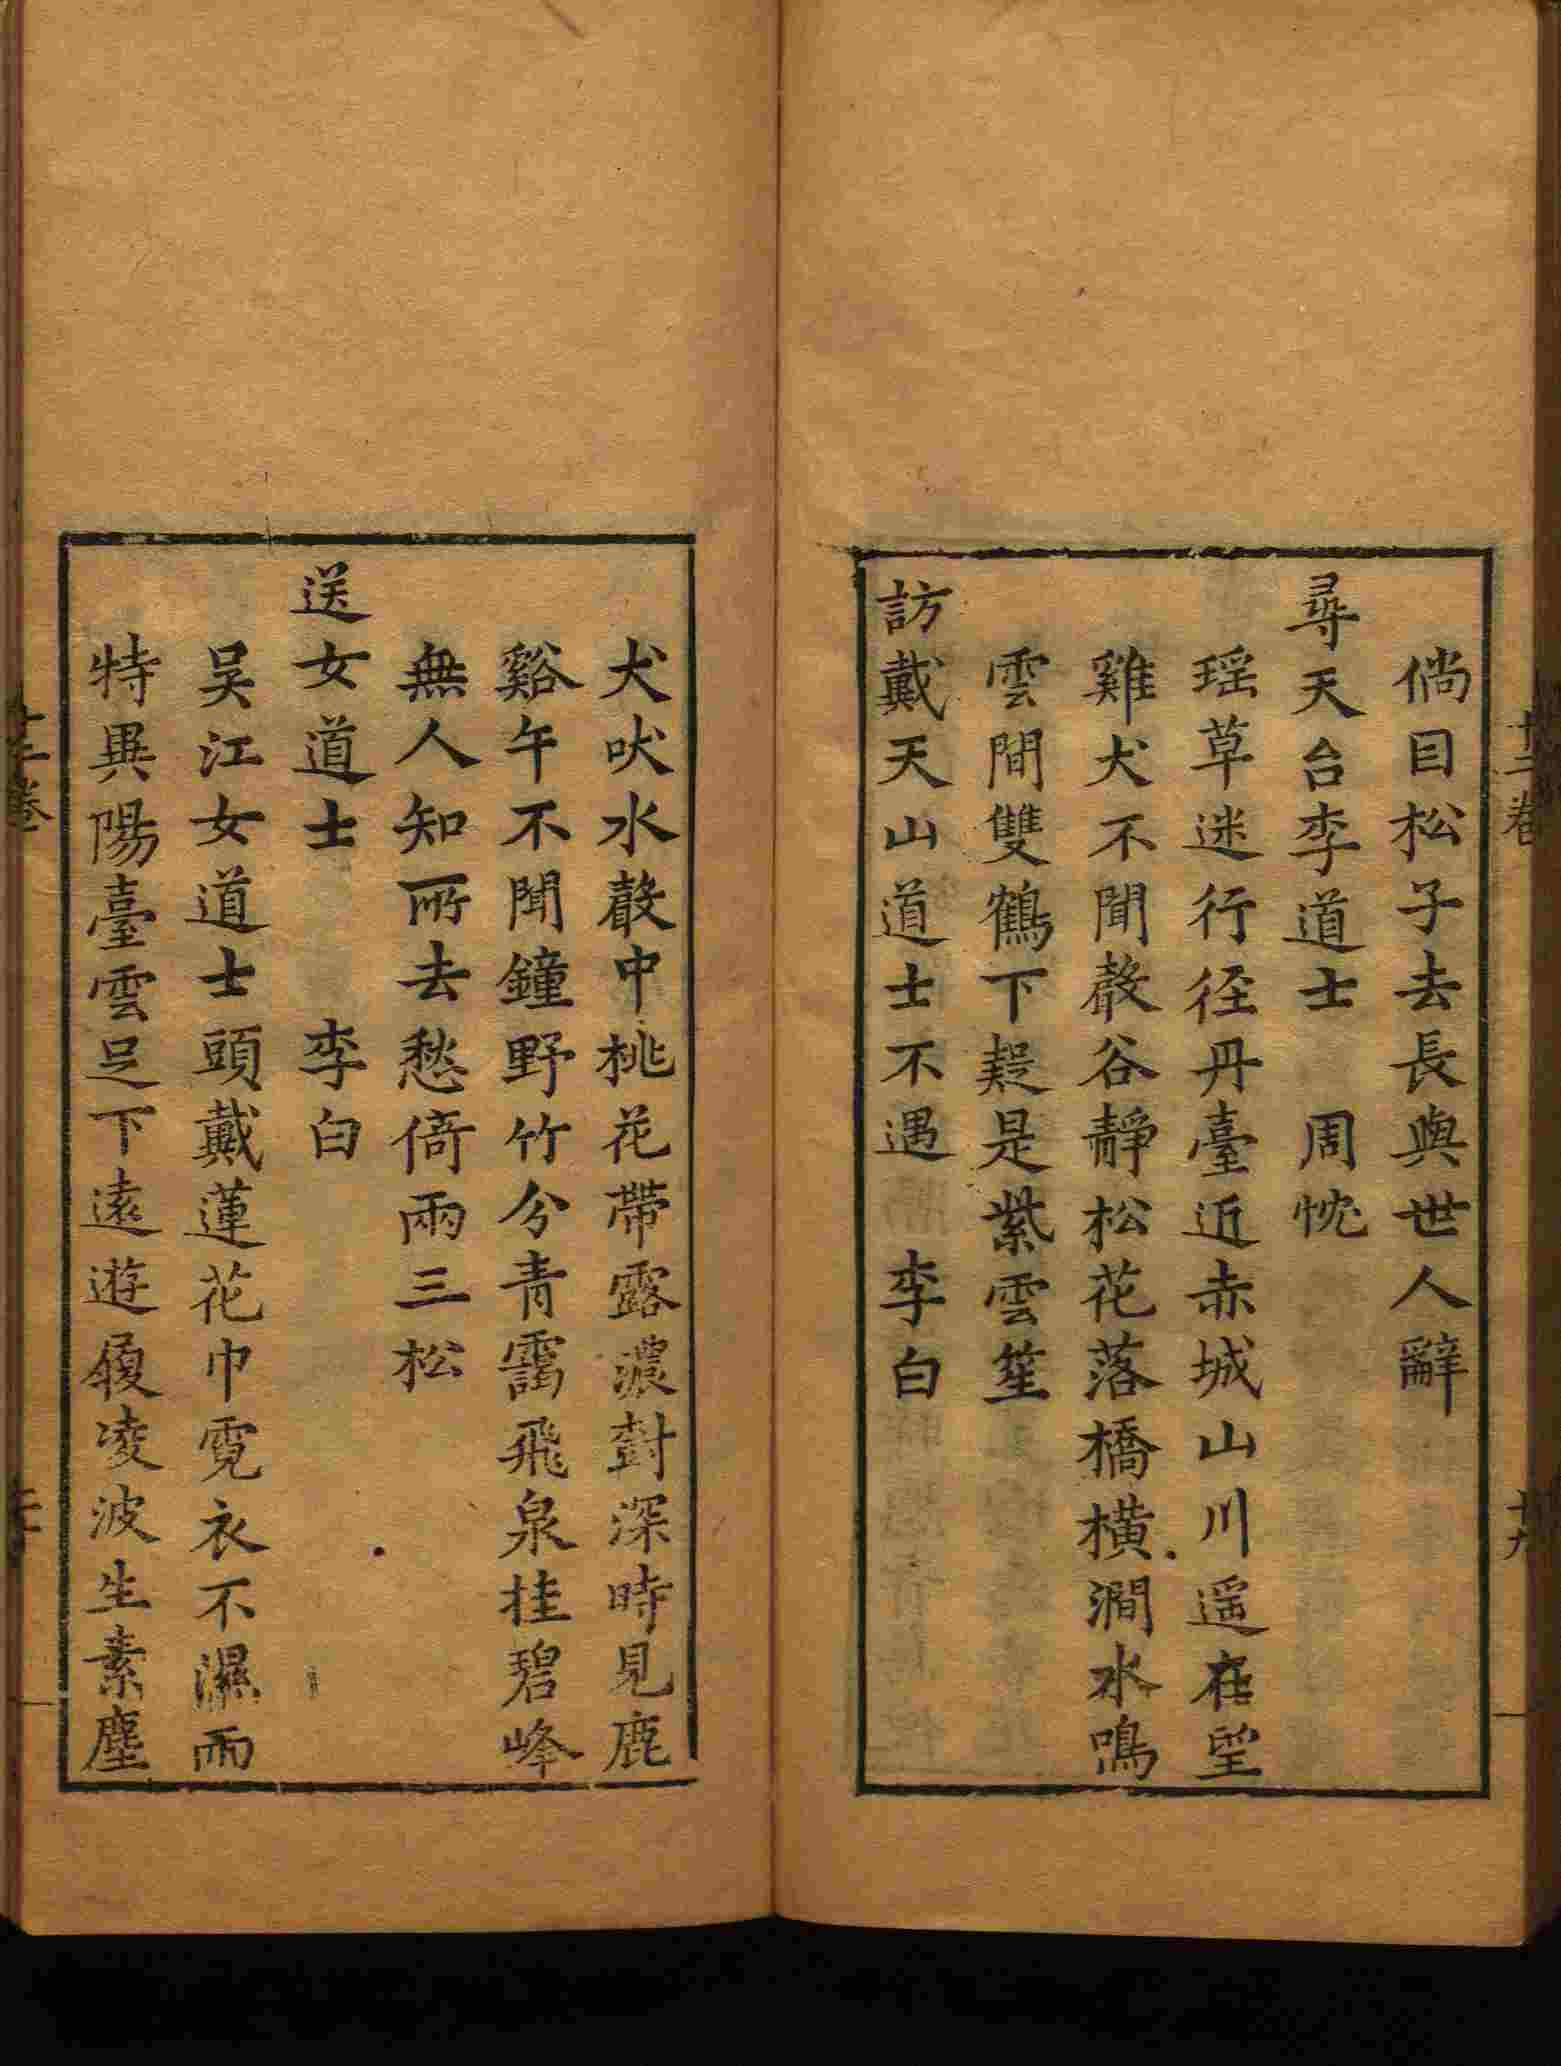 倘因松子去長與世人辭
尋天台李道士 周忱
瑶草迷行徑丹臺近赤城山川遥在望
雞犬不聞聲谷靜松花落橋横澗水鳴
雲間雙鶴下疑是紫雲笙
訪戴天山道士不遇 李白
犬吠水聲中桃花帶露濃樹深時見鹿
谿午不聞鐘野竹分青靄飛泉挂碧峰
無人知所去愁倚兩三松
送女道士 李白
吴江女道士頭戴蓮花巾霓衣不濕雨
特異陽臺雲足下遠遊履凌波生素塵
十二卷
十九